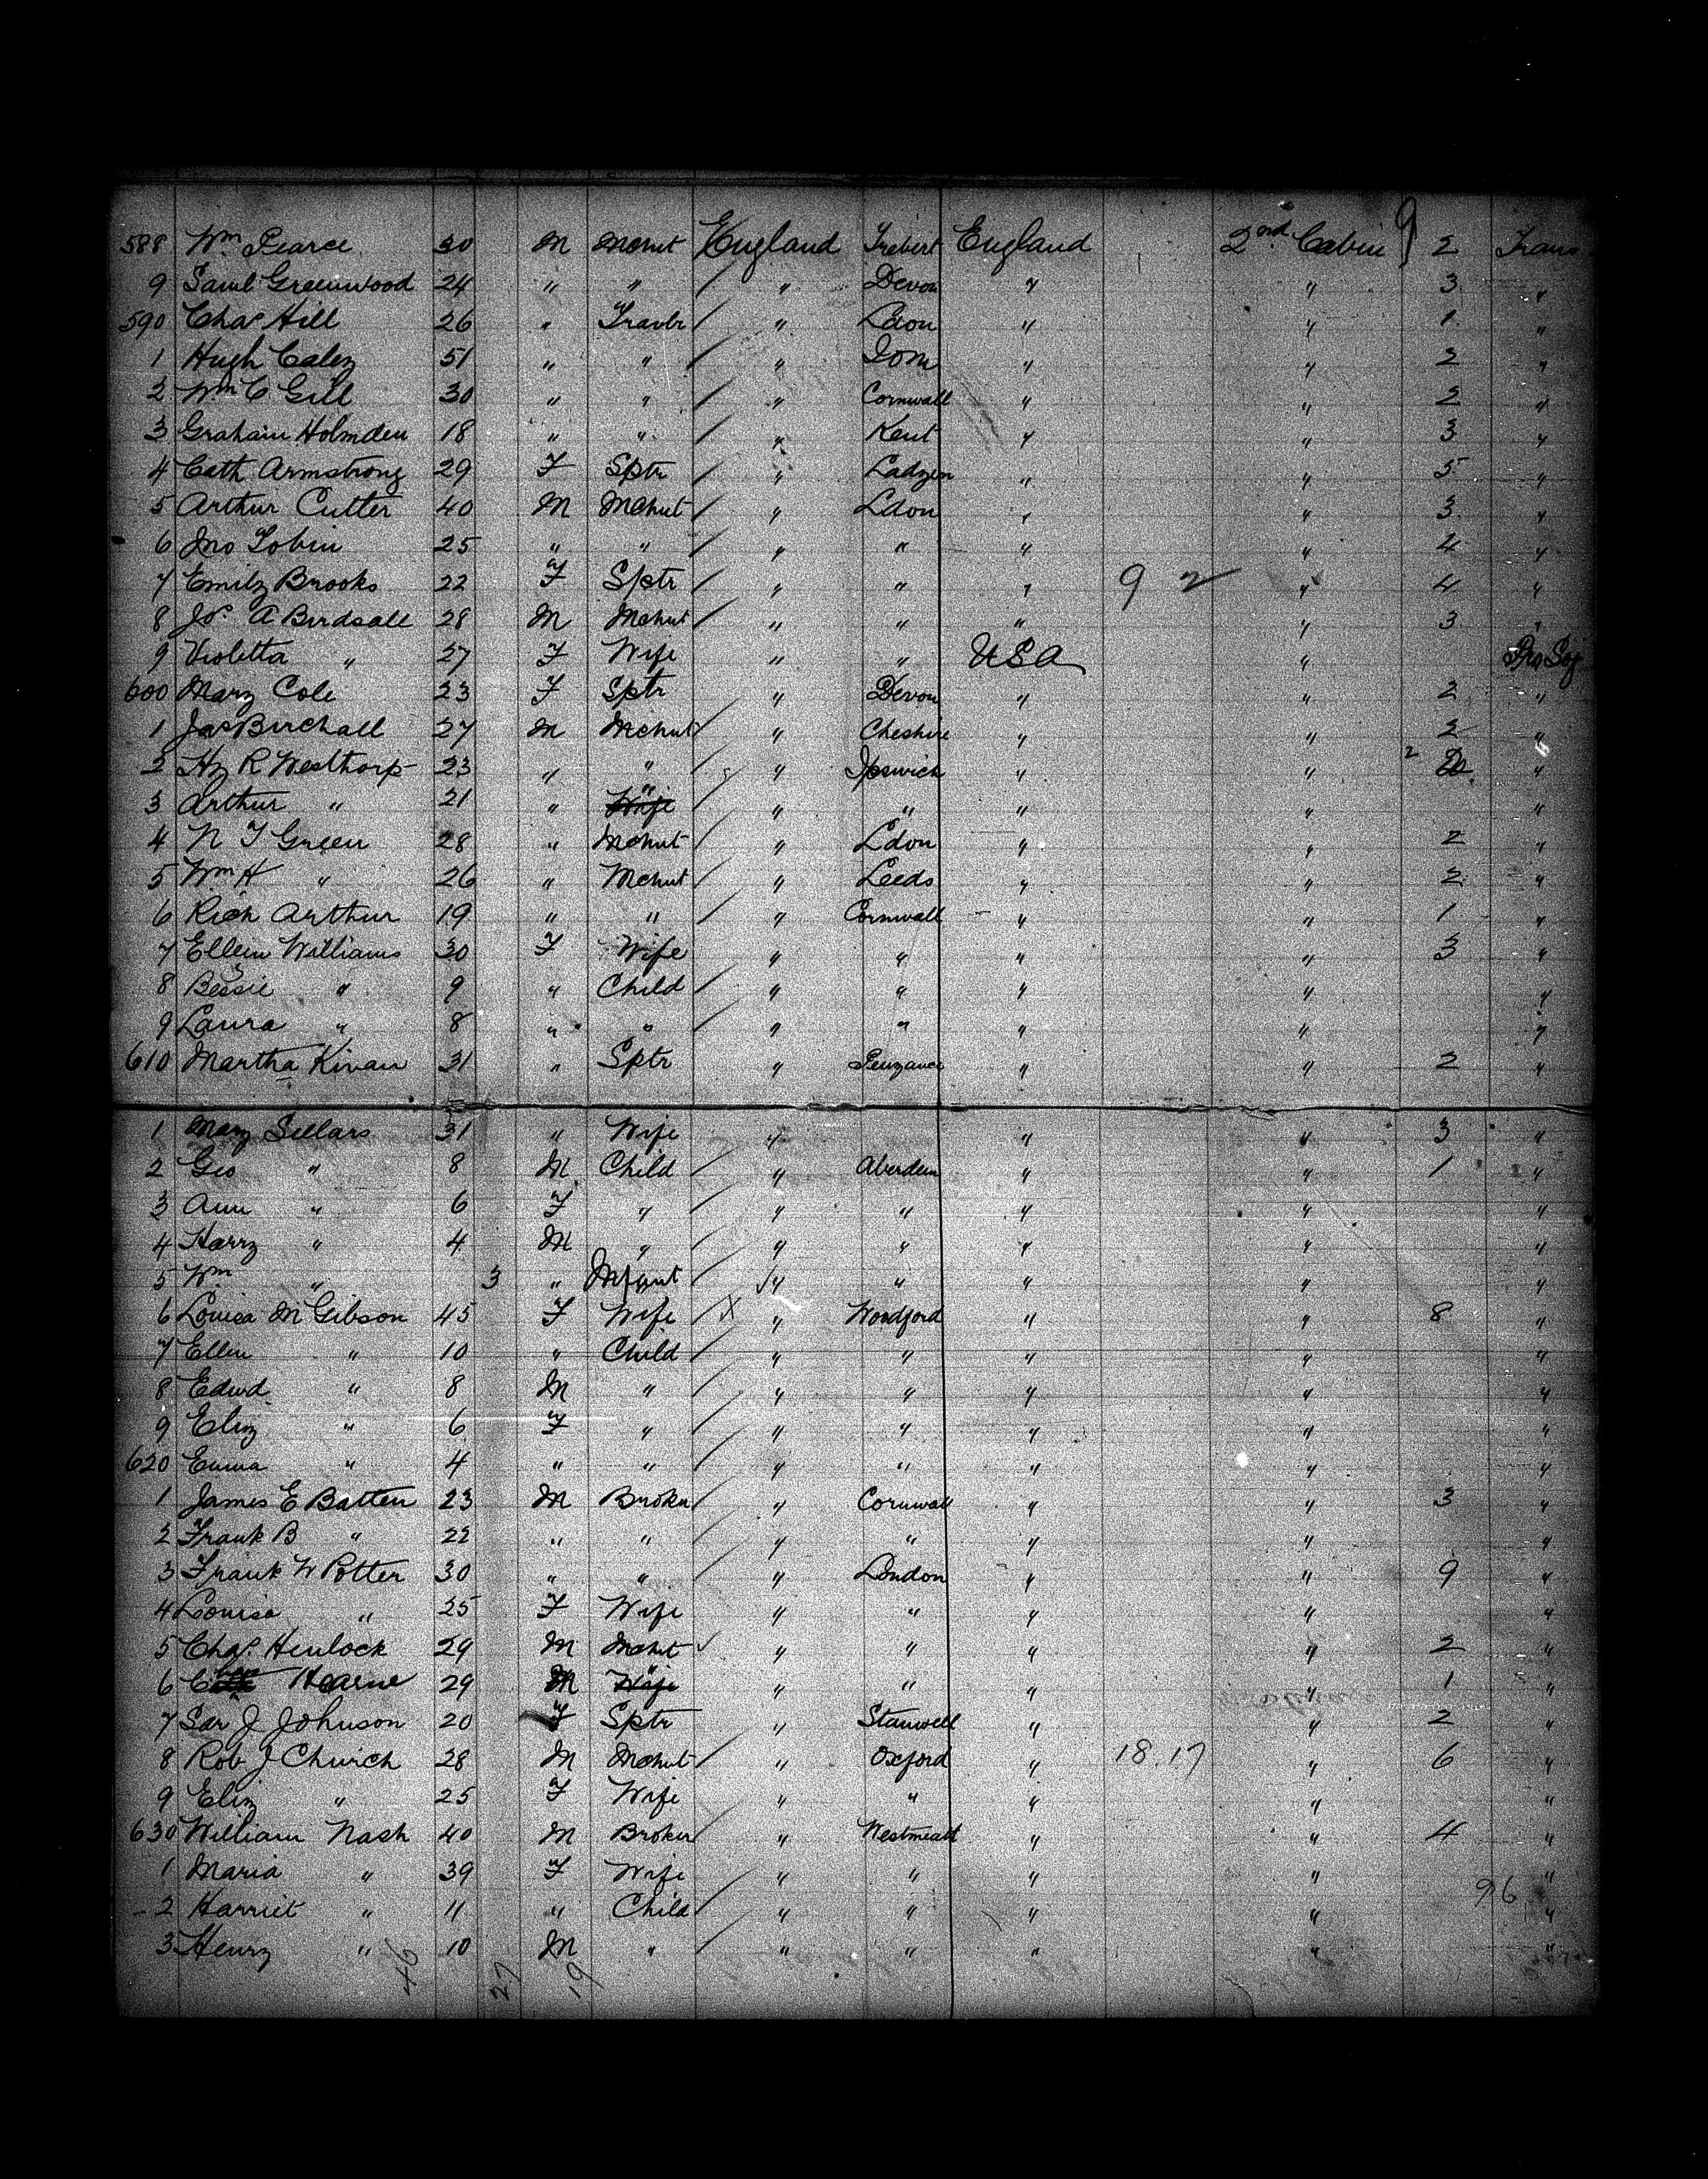 588 Wm Pearce 30 M Mchnt England England 2nd Cabin 9 2 Trans
9 Saml Greenwood 24 " " " Devon " " 3 "
590 Chas Hill 26 " Travlr " Ldon " " 1 "
1 Hugh Caley 51 " " " IOM " " 2 "
2 Wm C Gill 30 " " " Cornwall " " 2 "
3 Graham Holmden 18 " " " Kent " " 3 "
4 Cath Armstrong 29 F Sptr " " " 5 "
5 Arthur Cutter 40 M Mchnt " Ldon " " 3 "
6 Jno Tobin 25 " " " " " " 4 "
7 Emily Brooks 22 F Sptr " " " 9 2 " 4 "
8 Js A Birdsall 28 M Mchnt " " " " 3 "
9 Violetta " 27 F Wife " " USA "
600 Mary Cole 23 F Sptr " Devon " " 2 "
1 Jas Birchall 27 M Mchnt " Cheshire " " 2 "
2 Hy R Westhorp 23 " " " Ipswich " " 2 "
3 Arthur " 21 " " " " " " "
4 N T Green 28 " Mchnt " Ldon " " 2 "
5 Wm H " 26 " Mchnt " Leeds " " 2 "
6 Rich Arthur 19 " " " Cornwall " " 1 "
7 Ellen Williams 30 F Wife " " " " 3 "
8 Bessie " 9 " Child " " " " "
9 Laura " 8 " " " " " " "
610 Martha Kivan 31 " Sptr " Penzance " " 2 "
1 Mary Sellars 31 " Wife " " " 3 "
2 Geo " 8 M Child " Aberdeen " " 1 "
3 Ann " 6 F " " " " " "
4 Harry " 4 M " " " " " "
5 Wm " 3 " Infant " " " " "
6 Louisa M Gibson 45 F Wife X " Woodford " " 8 "
7 Ellen " 10 " Child " " " " "
8 Edwd " 8 M " " " " " "
9 Eliz " 6 F " " " " " "
620 Emma " 4 " " " " " " "
1 James E Batten 23 M Broker " Cornwall " " 3 "
2 Frank B " 22 " " " " " " "
3 Frank W Potter 30 " " " London " " 9 "
4 Louisa " 25 F Wife " " " " "
5 Chas Henlock 29 M Mchnt " " " " 2 "
6 Hearne 29 M " " " " " 1 "
7 Sar J Johnson 20 F Sptr " Stanwell " " 2 "
8 Rob J Church 28 M Mchnt " Oxford " 18.17 " 6 "
9 Eliz " 25 F Wife " " " " "
630 William Nash 40 M Broker " Westmeath " " 4 "
1 Maria " 39 F Wife " " " " "
2 Harriet " 11 " Child " " " " 96 "
3 Henry " 10 M " " " " " "
46 27 19